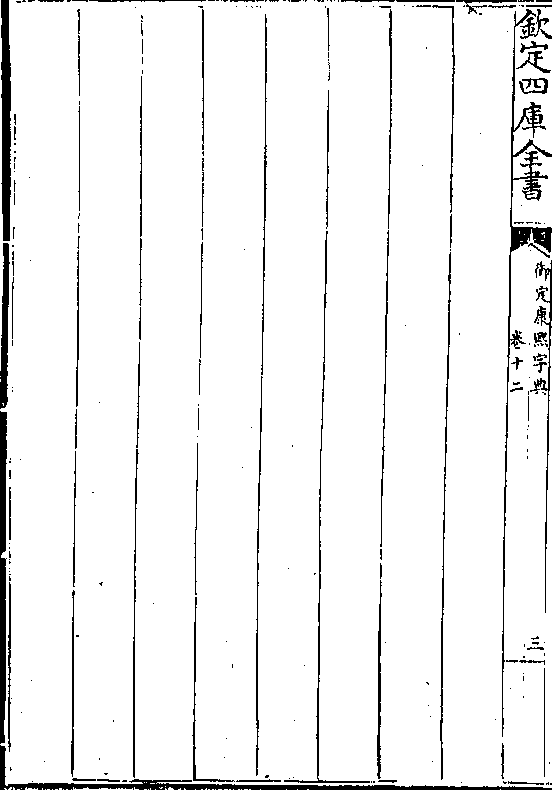 欽定四庫全書
御定康熙字典
卷十二
三